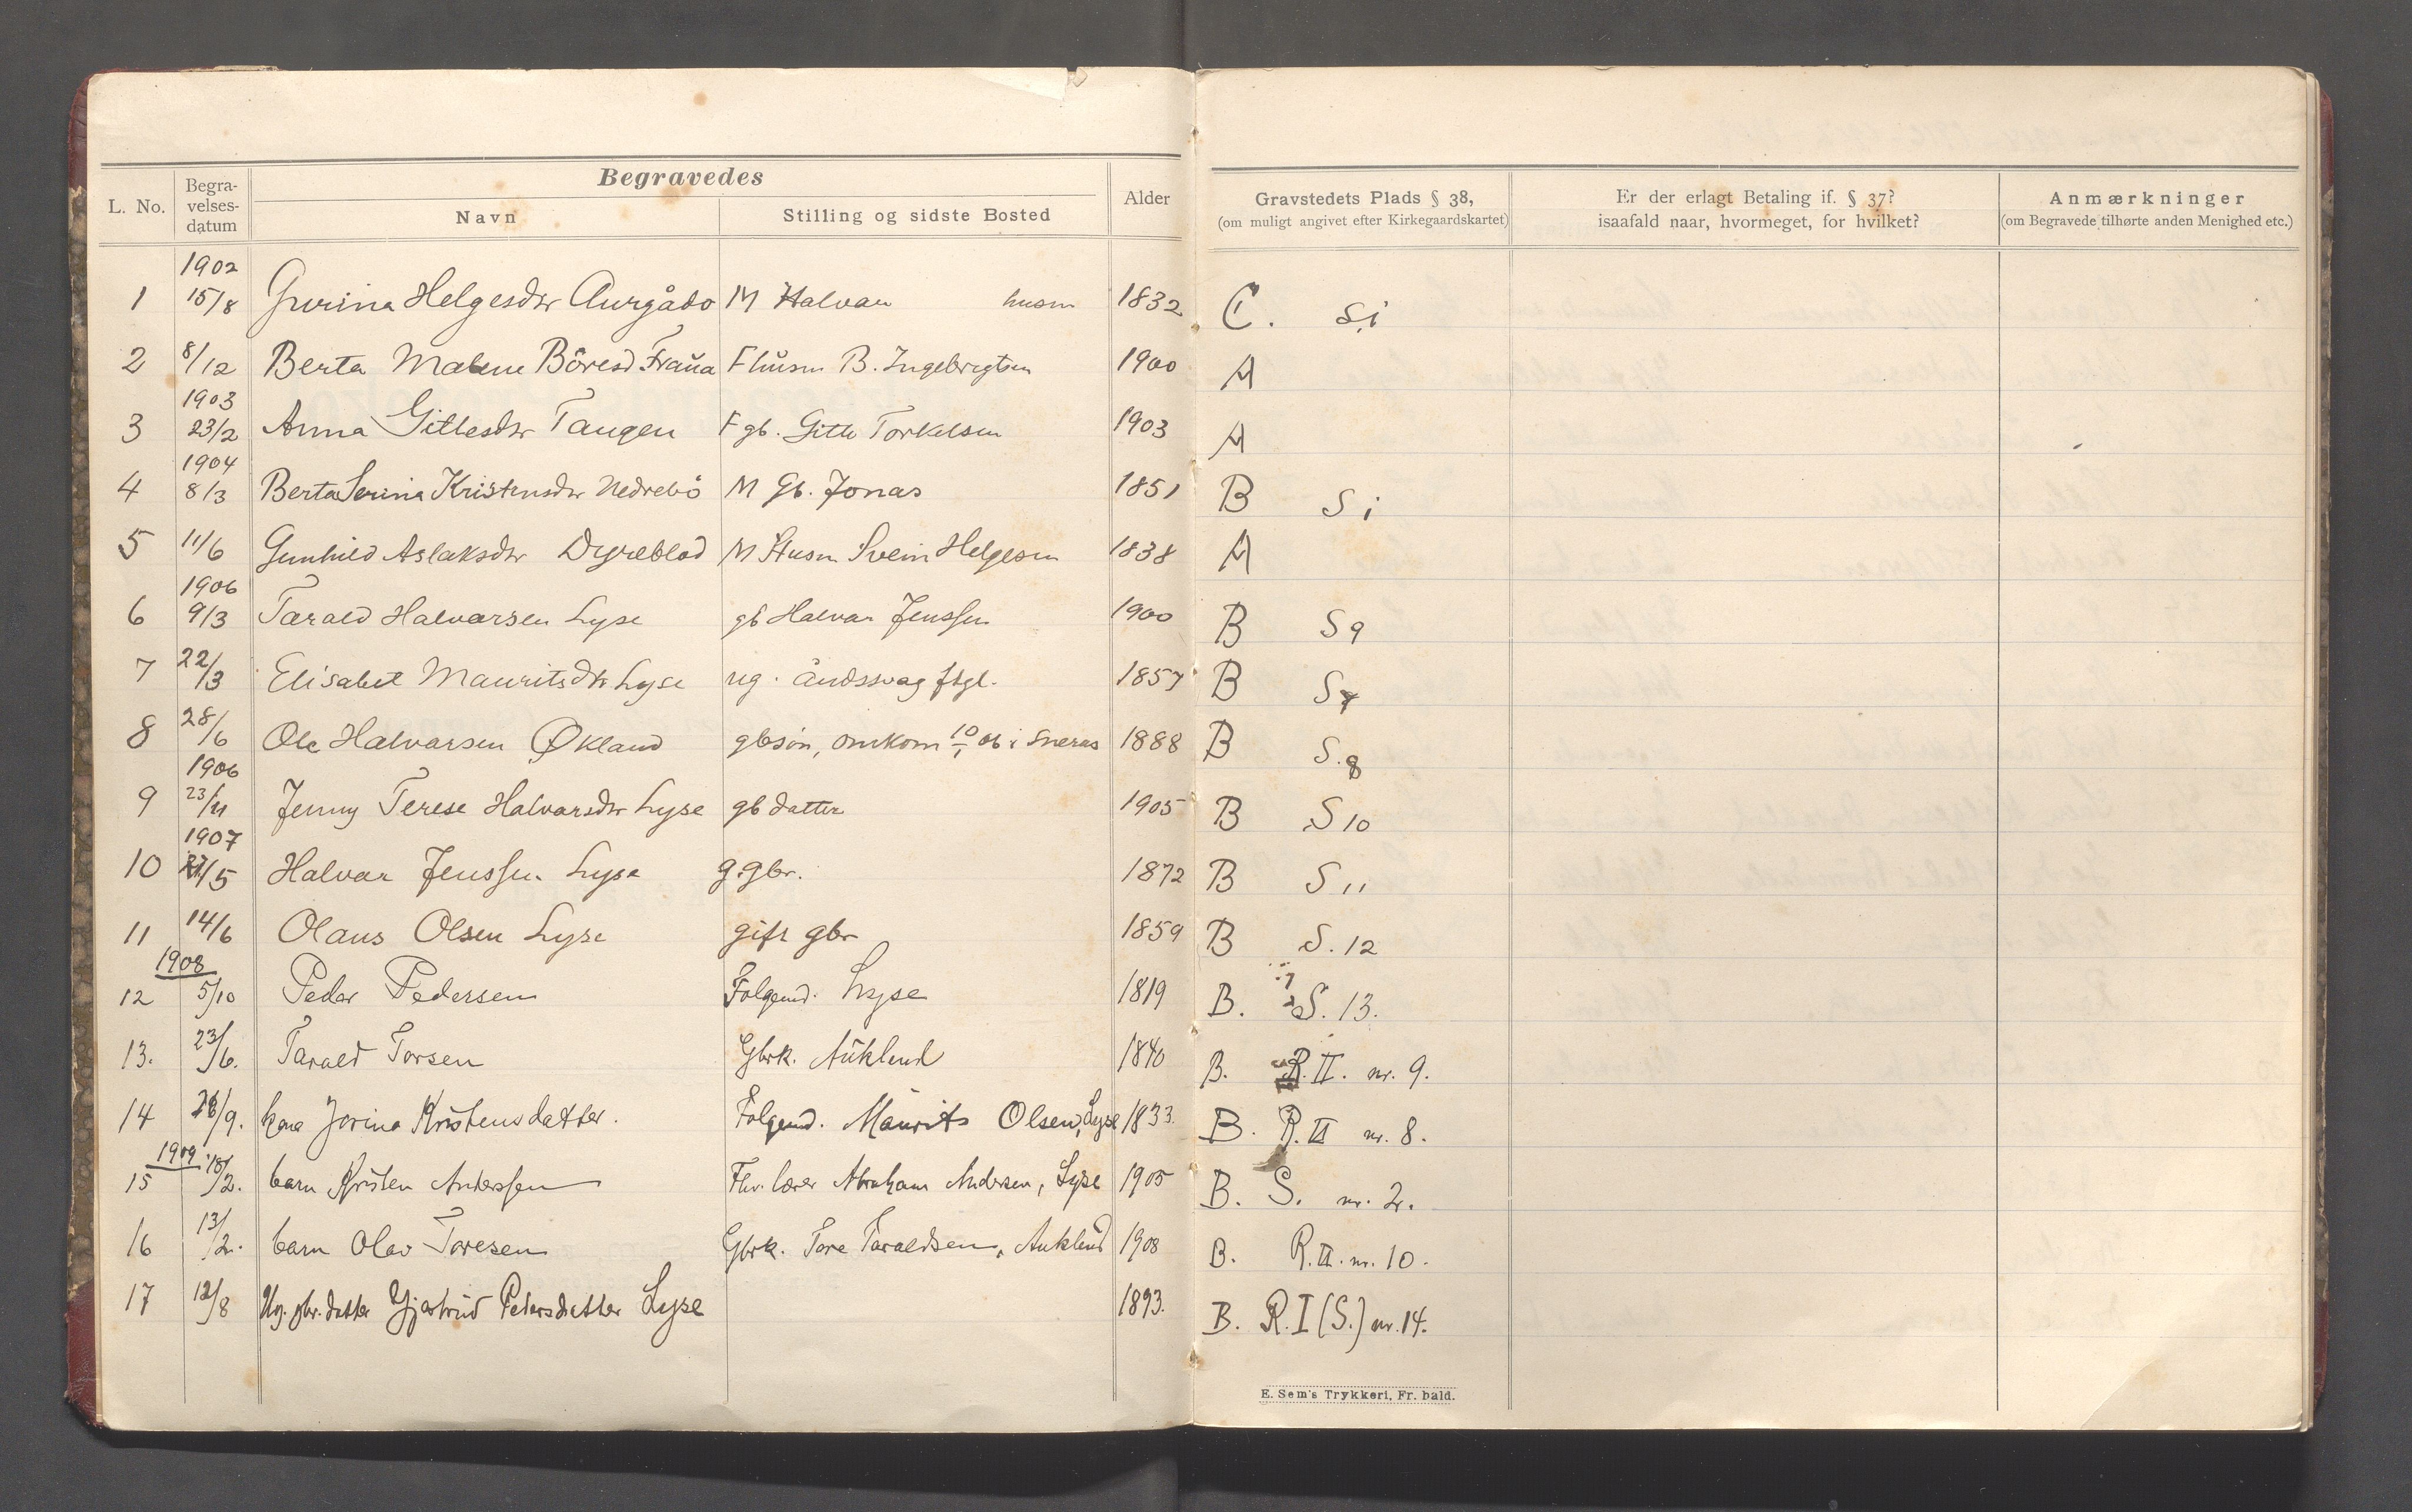 Begravedes
L. No. Begra-velses-datum Navn Stilling og sidste Bosted Alder Gravstedets Plads § 38, (om muligt angivet efter Kirkegaardskartet) Er der erlagt Betaling if. § 37? isaafald naar, hvormeget, for hvilket? Anmærkninger (om Begravede tilhørte anden Menighed etc.)
1902
1 15/8 Gurina Helgesdtr Aurgådo M Halvar husm 1832 C. Si
2 8/12 Berta Malene Böresd Fraua F husm B. Ingebrigtsen 1900 A
1903
3 23/2 Anna Gitlesdtr Tangen F gb. Gitle Torkelsen 1903 A
1904
4 8/3 Berta Serina Kristensdtr Nedrebö M Gb. Jonas 1851 B Si
5 11/6 Gunhild Aslaksdtr Dyreblod M Husm Svein Helgesen 1838 A
1906
6 9/3 Tarald Halvarsen Lyse gb Halvar Jenssen 1900 B S 9
7 22/3 Elisabet Mauritsdtr Lyse ug. åndssvag fkgl. 1857 B S 7
8 28/6 Ole Halvarsen Økland gbsön, omkom 10/1 06 i Sneras 1888 B S. 8
1906
9 23/11 Jenny Terese Halvarsdtr Lyse gb datter 1905 B S 10
1907
10 /5 Halvar Jenssen Lyse g. gbr. 1872 B S 11
11 14/6 Olaus Olsen Lyse gift gbr 1859 B S. 12
1908
12 5/10 Peder Pedersen Folgemd. Lyse 1819 B. S. 13.
13. 23/6. Tarald Torsen Gbrk. Auklend 1840 B. R. II. nr. 9.
14 /9. kone Jorina Kristensdatter. Folgemd. Maurits Olsen, Lyse 1833. B. R. II nr. 8.
1909
15 18/2. barn Kristen Anderssen Fhv. lærer Abraham Andersen, Lyse 1905 B. S. nr. 2.
16 13/2. barn Olav Toresen Gbrk. Tore Taraldsen, Auklend 1908 B. R. II. nr. 10.
17 12/8 Ug. gbr. datter Gjertrud Pedersdatter Lyse 1893. B. R. I (S.) nr. 14.
E. Sem's Trykkeri, Fr. hald.